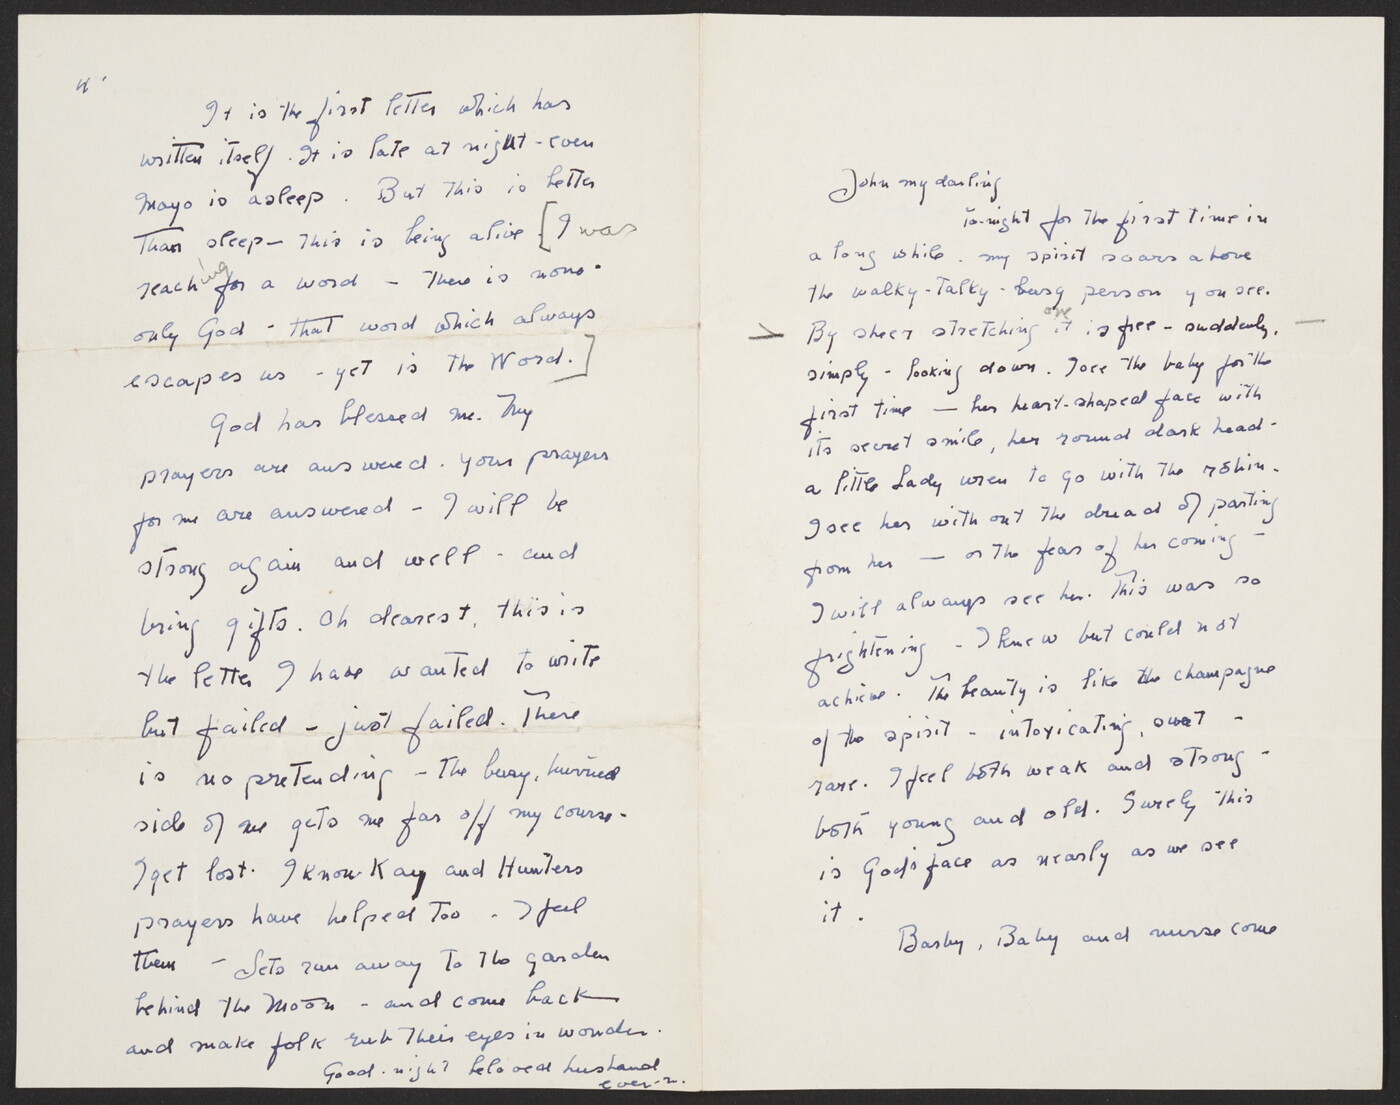 4'
It is the first letter which has
written itself. It is late at night - even
Mayo is asleep. But this is better
than sleep - this is being alive. [I was
reaching for a word - There is none.
only God - that word which always
escapes us - yet is the Word.]
God has blessed me. My
prayers are answered. Your prayers
for me are answered - I will be
strong again and well - and
bring gifts. Oh dearest, this is
the letter I have wanted to write
but failed - just failed. There
is no pretending - the busy, hurried
side of me gets me far off my course.
I get lost. I know Kay and Hunters
prayers have helped too - I feel
them - Lets run away to the garden
behind the Moon - and come back
and make folk rub their eyes in wonder.
Good-night beloved husband
ever-r.
John my darling
To-night for the first time in
a long while. my spirit soars above
the walky-talky-busy person you see.
By sheer stretching it is free - suddenly,
simply - looking down. I see the baby for the
first time — her heart-shaped face with
its secret smile, her round dark head -
a little Lady wren to go with the robin.
I see her with out the dread of parting
from her — or the fear of her coming -
I will always see her. This was so
frightening - I knew but could not
achieve. The beauty is like the champagne
of the spirit - intoxicating, sweet -
rare. I feel both weak and strong -
both young and old. Surely this
is God's face as nearly as we see
it.
Barby, Baby and nurse come